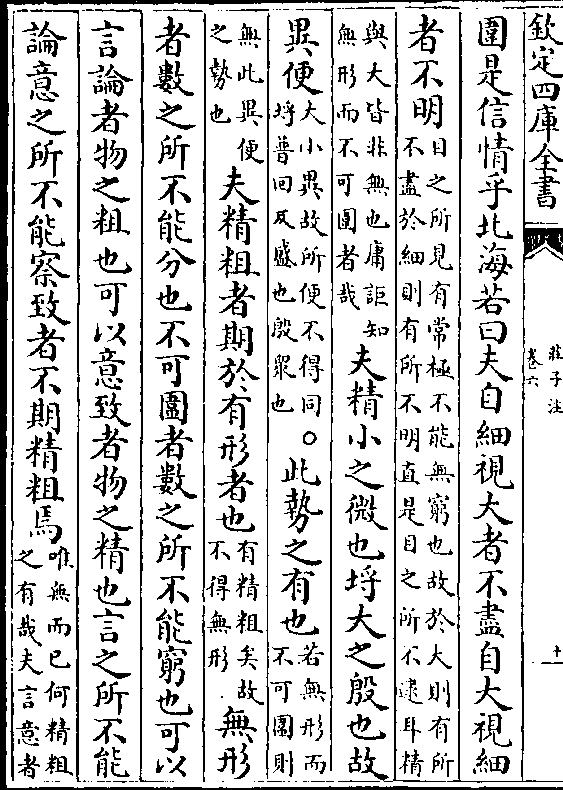 欽定四庫全書
莊子注
卷六
十一
圍是信情乎北海若曰夫自細視大者不盡自大視細
者不明目之所見有常極不能無窮也故於大則有所不盡於細則有所不明直是目之所不逮耳精
與大皆非無也庸詎知無形而不可圍者哉夫精小之微也垺大之殷也故
異便大小異故所便不得同垺普回反盛也殷衆也○此勢之有也若無形而不可圍則
無此異便之勢也夫精粗者期於有形者也有精粗矣故不得無形無形
者數之所不能分也不可圍者數之所不能窮也可以
言論者物之粗也可以意致者物之精也言之所不能
論意之所不能察致者不期精粗焉唯無而已何精粗之有哉夫言意者